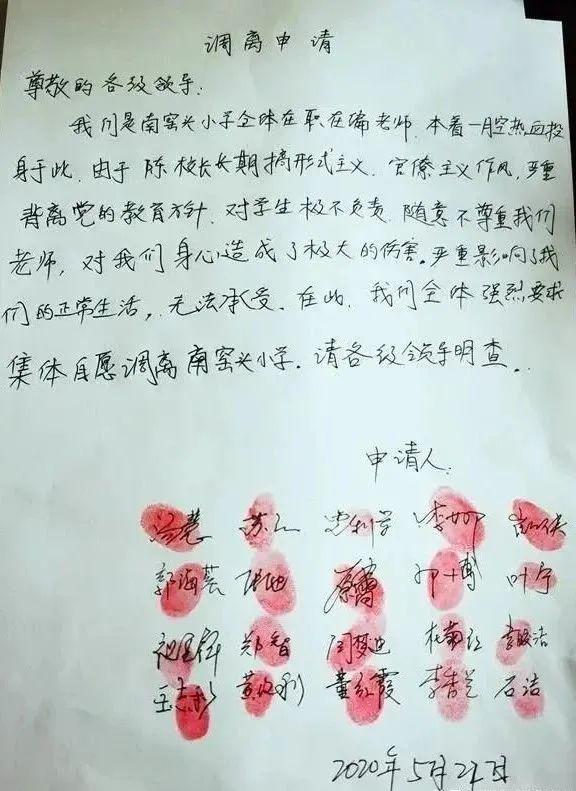 调离申请
尊敬的各级领导:
我们是南窑头小学全体在职在编老师.本着一腔热血投
身于此.由于陈校长长期搞形式主义.官僚主义作风,严重
背离党的教育方针.对学生极不负责.随意不尊重我们
老师,对我们身心造成了极大的伤害。严重影响了我
们的正常生活,无法承受.在此,我们全体强烈要求
集体自愿调离南窑头小学.请各级领导明查..
申请人:
郭海芸 叶宁
郑智
董红霞 李杏兰 石洁
2020年5月22日